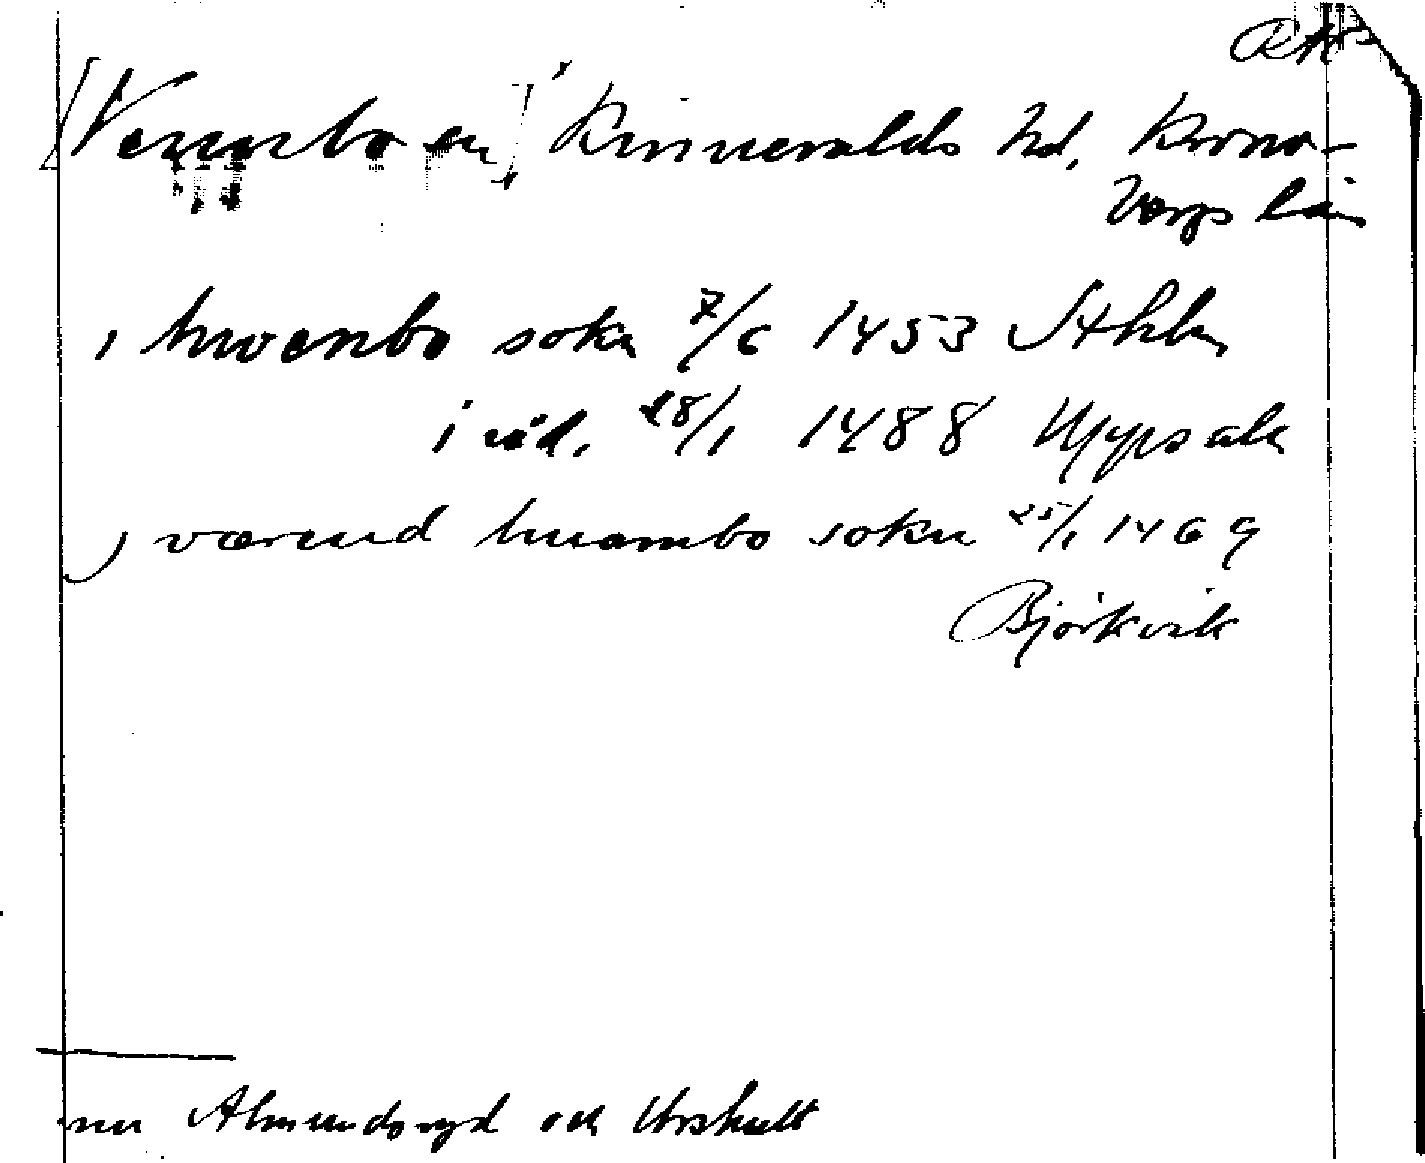 [Venmboen], Kinnevalds hd, Krono-
bergs län
i hwenbo sokn 7/6 1453 Sthlm
i vid. 28/1 1488 Uppsala
i værend huembo sokn 25/1 1469
Björkvik
nu Almundsryd och Urshult